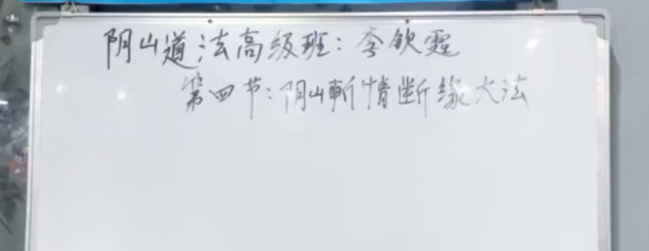 阴山道法高级班：李钦霆
第四节：阴山斬情断缘大法